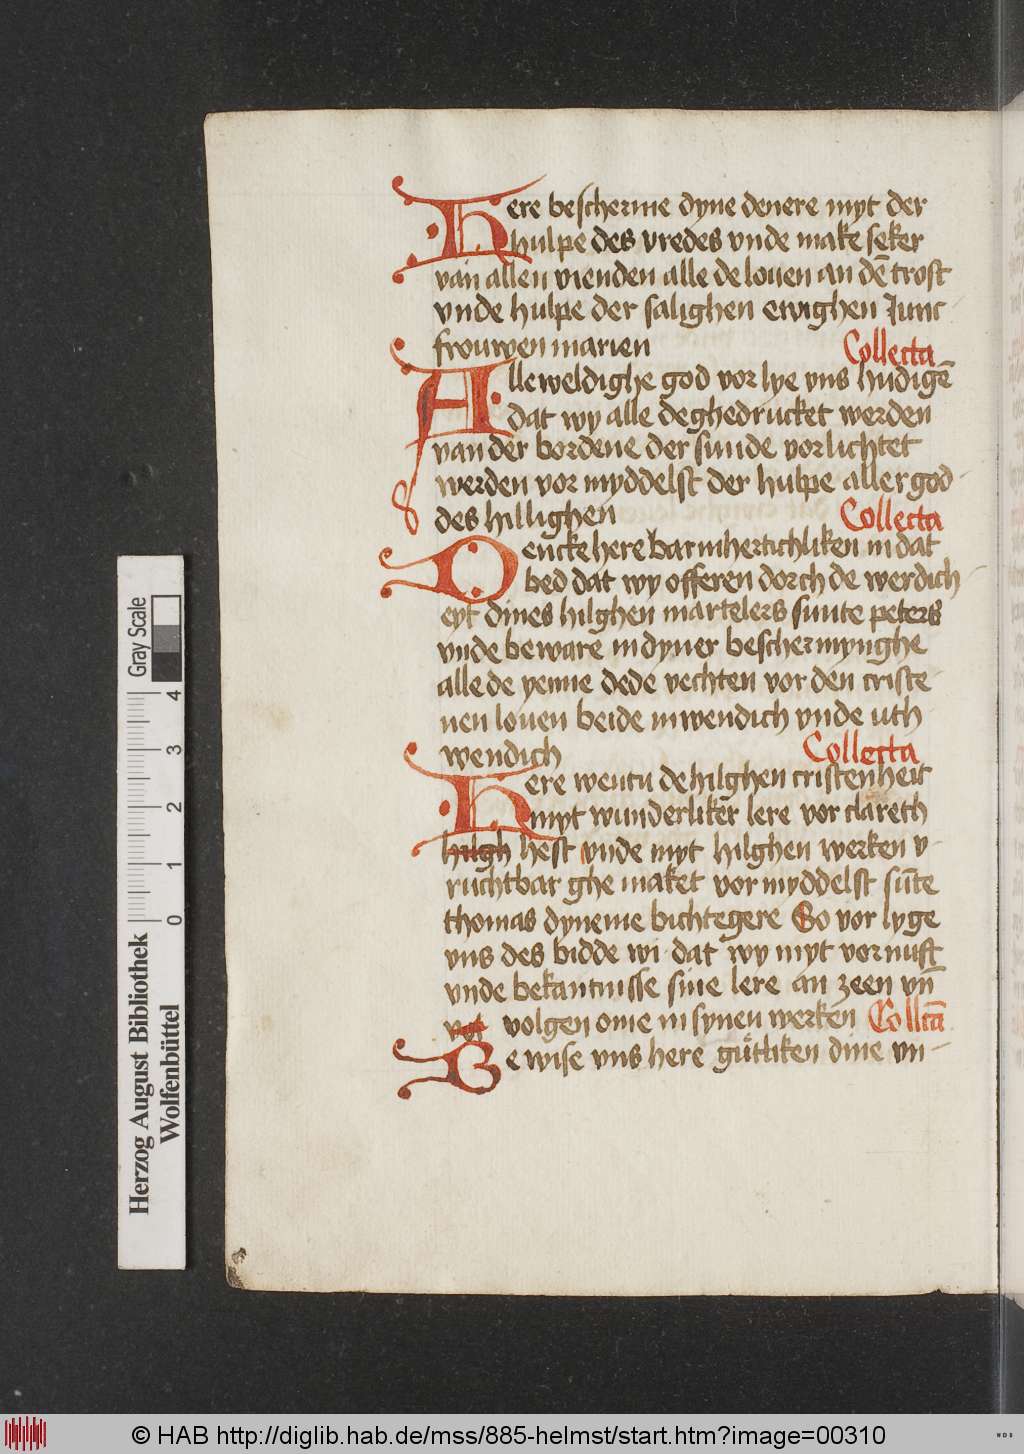 Here bescherme dyne denere myt der
hulpe des vredes vnde make seker
van allen vienden alle de louen an dē trost
vnde hulpe der salighen ewighen Junc
frouwen marien Collecta
Alle weldighe god vor lye vns hudigē
dat wy alle de ghedrucket werden
van der bordene der sunde vorlichtet
werden vor myddelst der hulpe aller god-
des hillighen Collecta
Dencke here barmhertichliken in dat
bed dat wy offeren dorch de werdich-
eyt dines hilghen martelers sunte peters
vnde beware in dyner beschermynghe
alle de yenne dede vechten vor den criste-
nen louen beide inwendich vnde uth
wendich Collecta
Here wentu de hilghen cristenheit
myt wunderliker lere vor clareth
hilgh hest vnde myt hilghen werken v-
ruchtbar ghe maket vor myddelst sūte
thomas dyneme bichtegere So vor lyge
vns des bidde wi dat wy myt vornuft
vnde bekantnisse sine lere an zeen vn̄
vot volgen ome in synen werken Collcā
Be wise vns here gůtliken dine vn-
Gray Scale
0 1 2 3 4
Herzog August Bibliothek
Wolfenbüttel
© HAB http://diglib.hab.de/mss/885-helmst/start.htm?image=00310